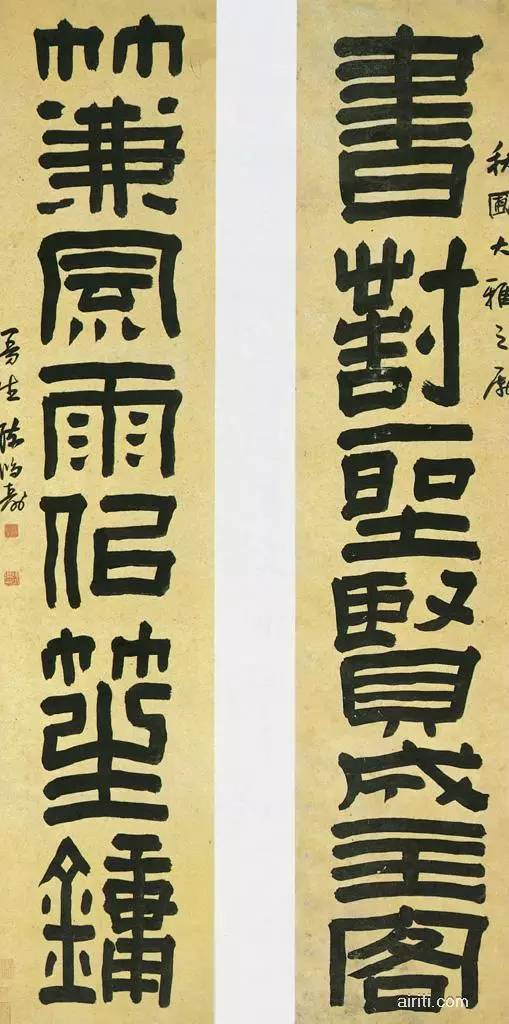 秋圃大雅之屬
書對聖賢成主客
竹兼風雨佀笙鏞
曼生陳鴻壽
airiti.com